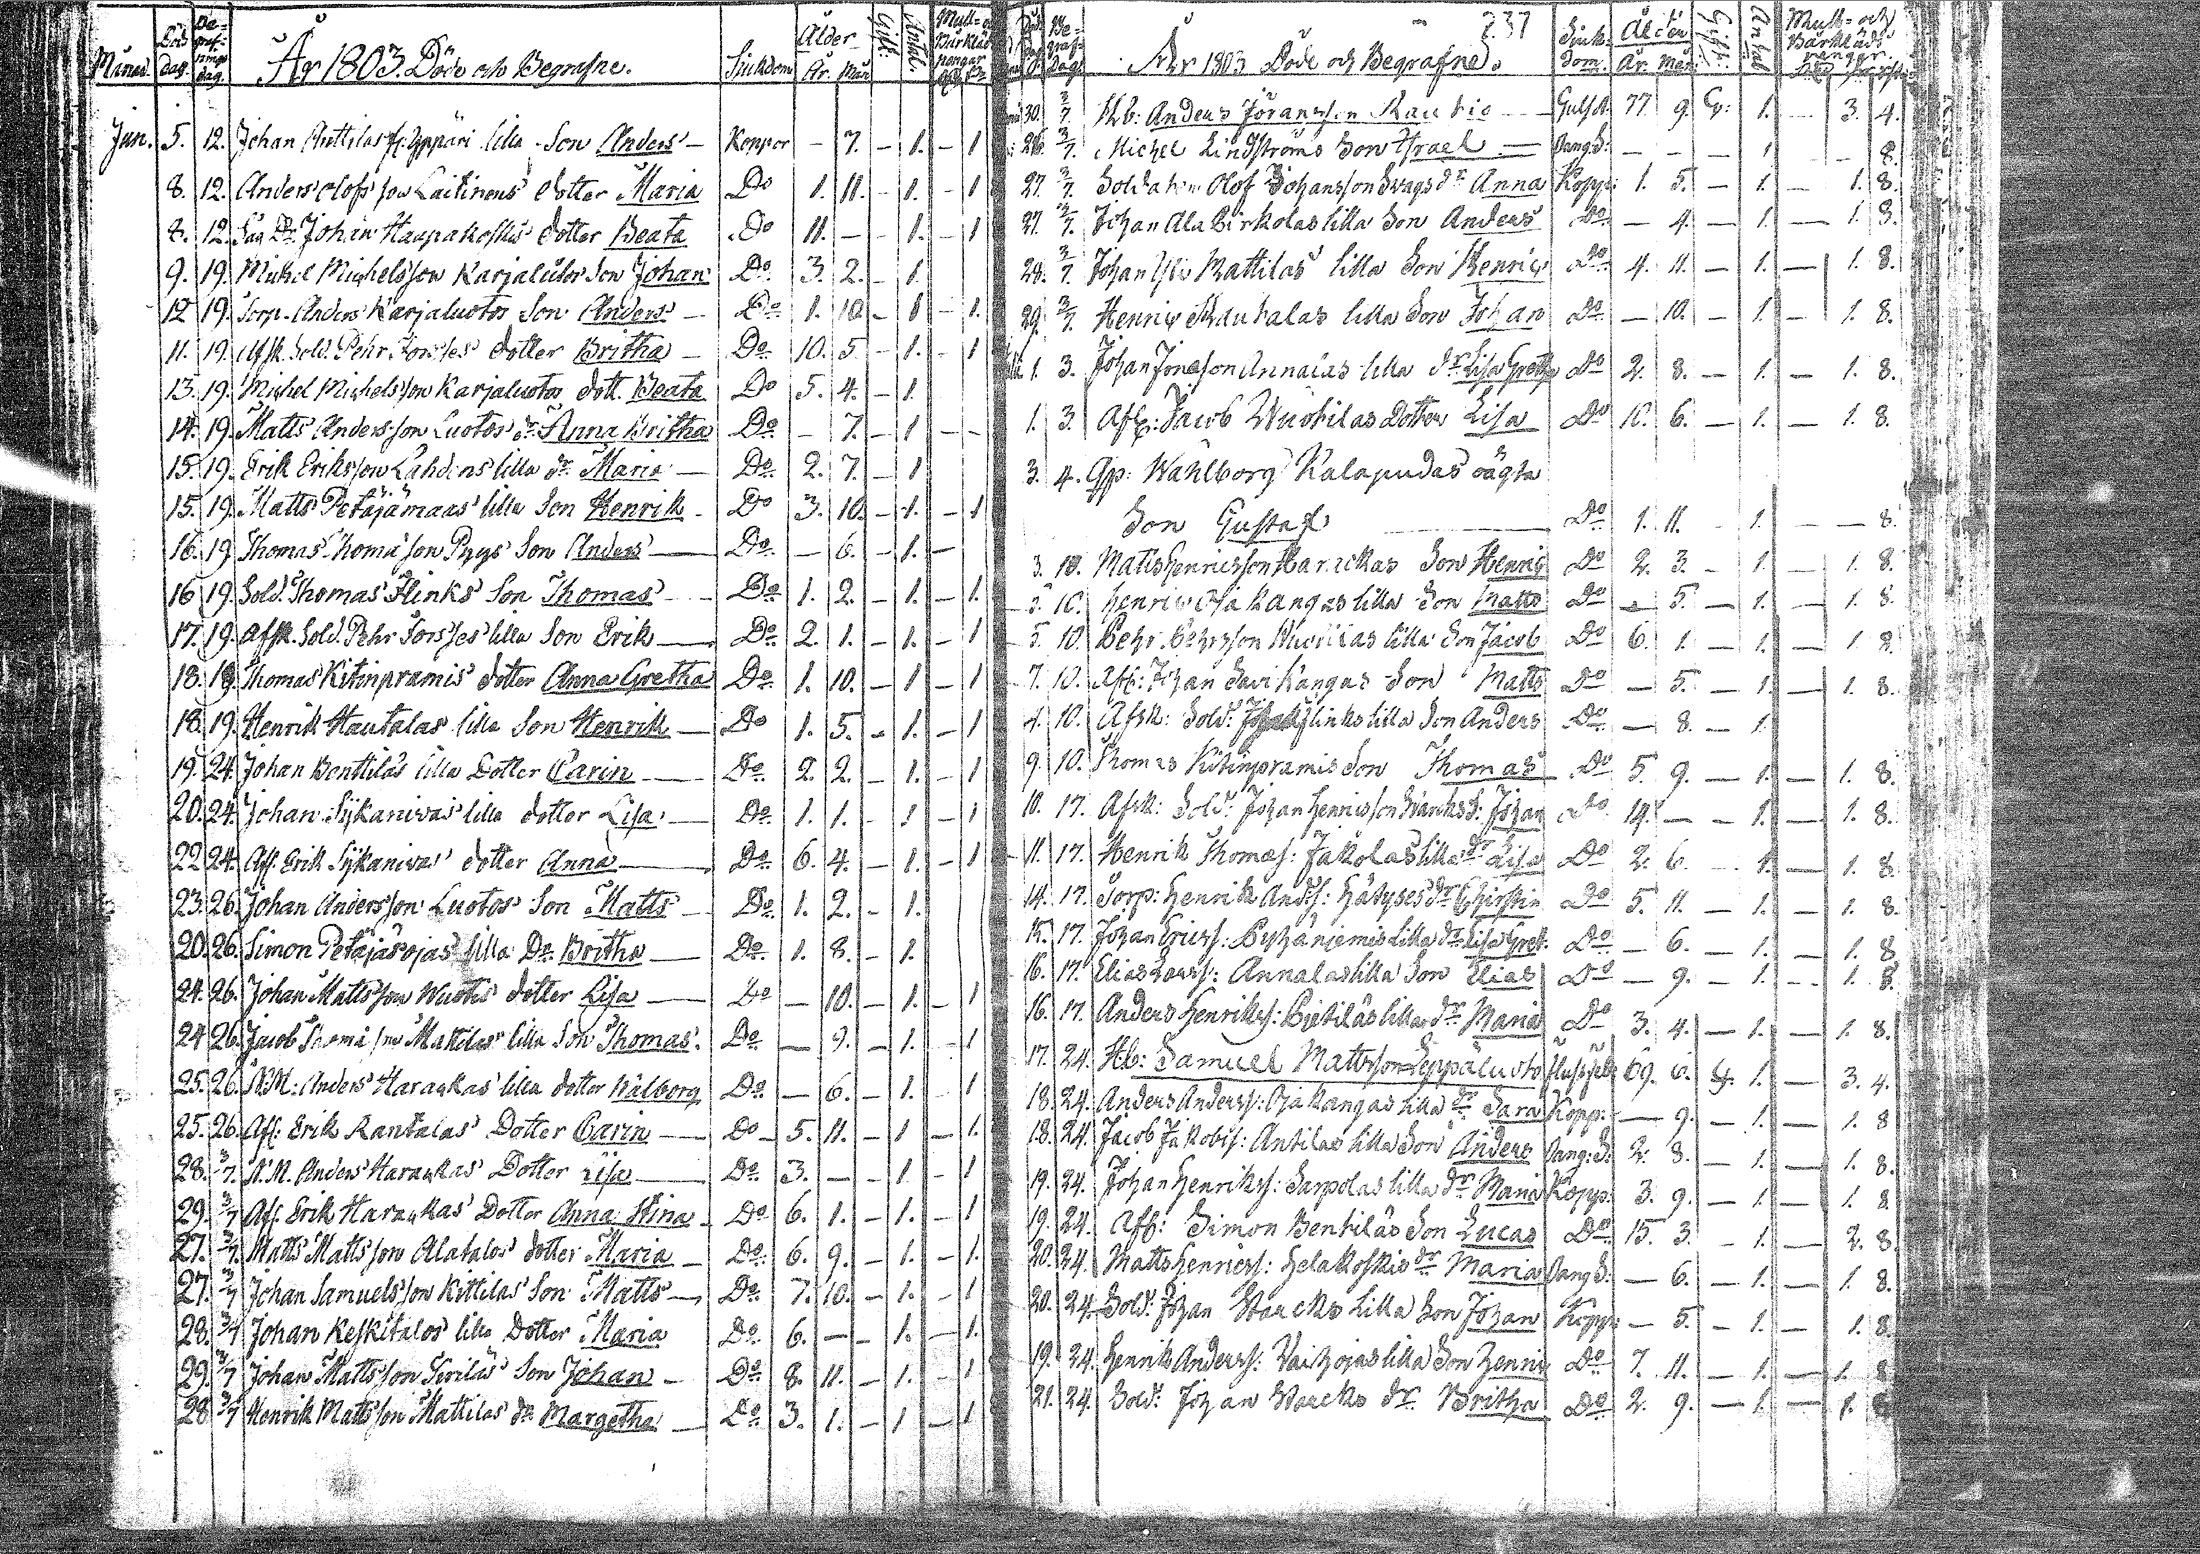 Månad. Död dag. Begrafnings dag. År 1803. Döde och Begrafne. Sjukdom Ålder År. Mån. Gift. Antal.
Jun. 5. 12. Johan Anttilas lilla Son Anders — Koppor — 7. — 1. — 1
8. 12. Anders Olofsson Laitinens dotter Maria Do 1. 11. — 1. — 1
8. 12. Johan Haapakoskis dotter Beata Do 11. — — 1. — 1
9. 19. Michel Michelsson Karjaluotos Son Johan Do 3. 2. — 1.
12 19. Torp. Anders Karjaluotos Son Anders — Do 1. 10. — 1 — 1.
11. 19. Afsk. Sold. Pehr Forsses dotter Britha — Do 10. 5. — 1. — 1
13. 19. Michel Michelsson Karjaluotos dott. Beata Do 5. 4. — 1.
14. 19. Matts Andersson Luotos dr Anna Britha Do — 7. — 1 — -
15. 19. Erik Eriksson Lahdens lilla dr Maria — Do 2. 7. — 1
15. 19. Matts Petäjämaas lilla Son Henrik — Do 3. 10. — 1. — 1
16. 19 Thomas Thomasson Pyys Son Anders — Do — 6. — 1. —
16 19. Sold. Thomas Flinks Son Thomas — Do 1. 2. — 1. — 1
17. 19. Afsk. Sold. Pehr Forsses lilla Son Erik — Do 2. 1. — 1. — 1
18. 19. Thomas Kitinpramis dotter Anna Gretha Do 1. 10. — 1 — 1
18. 19. Henrik Hautalas lilla Son Henrik — Do 1. 5. — 1. — 1
19. 24. Johan Benttiläs lilla Dotter Carin — Do 2. 2. — 1. — 1
20. 24. Johan Sykaniwas lilla dotter Lisa — Do 1. 1. — 1 — 1
22 24. Afl. Erik Sykaniwas dotter Anna — Do 6. 4. — 1. — 1
23. 26. Johan Andersson Luotos Son Matts — Do 1. 2. — 1.
20. 26. Simon Petäjäsojas lilla Dr. Britha — Do 1. 8. — 1.
24. 26. Johan Mattsson Wuotis dotter Lisa — Do — 10. — 1. — 1
24 26. Jacob Thomasson Mattilas lilla Son Thomas. Do — 9. — 1. — 1
25. 26. N.M. Anders Harackas lilla dotter Walborg Do — 6. — 1. 1
25. 26. Afl. Erik Rantalas Dotter Carin — Do — 5. 11. — 1 — 1.
28. 3/7 N.M. Anders Harackas Dotter Lisa — Do 3. — — 1 — 1
29. 3/7 Afl. Erik Harackas Dotter Anna Stina — Do 6. 1. — 1. — 1
27. 3/7. Matts Mattsson Alatalos dotter Maria — Do 6. 9. — 1. — 1
27. 3/7 Johan Samuelsson Kittilas Son Matts — Do 7. 10. — 1. — 1
28. 3/7 Johan Keskitalos lilla Dotter Maria Do 6. — — 1. — 1.
29. 3/7 Johan Mattsson Son Johan — Do 8. 11. — 1. — 1
28 3/7 Henrik Mattsson Mattilas dr Margetha — Do 3. 1. — 1 — 1
237
År 1803 Döde och Begrafne. Sjukdom. Ålder År. Mån. Gift. Antal Mull- och Bårklädspengar
30. 3/7. Hb: Anders Göransson Rautio — 77 9. G: 1. — 3. 4.
26. 3/7. Michel Lindströms Son Israel — — — — 1 — — 8.
27. 3/7. Soldaten Olof Johansson Swags dr Anna Kopp: 1. 5. — 1 — 1. 8.
27. 3/7. Johan Ala Pirkolas lilla Son Anders Do — 4. — 1. — 1. 8.
28. 3/7. Johan Yli Mattilas lilla Son Henric Do 4. 11. — 1. — 1. 8.
29. 3/7. Henric Rautalas lilla Son Johan Do — 10. — 1. — 1. 8.
1. 3. Johan Jonasson Annalas lilla dr Lisa Greta Do 2. 8. — 1. — 1. 8.
1. 3. Afl: Jacob Wuotilas Dotter Lisa Do 10. 6. — 1. — 1. 8.
3. 4. Wahlborg Kalapudas oägta
Son Gustaf — Do 1. 11. — 1. — — 8.
3. 10. Matts Henricsson Harackas Son Henric Do 2. 3. — 1. — 1. 8.
5. 10. Henric Ojakangas lilla Son Matts Do — 5. — 1. — 1. 8.
5. 10. Pehr Pehrsson Wuotilas lilla Son Jacob Do 6. 1. — 1. — 1 8.
7. 10. Afl: Johan Savikangas Son Matts Do — 5. — 1. — 1. 8.
4. 10. Afsk: Sold: Flinks lilla Son Anders Do — 8. — 1
9. 10. Thomas Kitinpramis Son Thomas Do 5. 9. — 1. — 1. 8.
10. 17. Afsk: Sold: Johan Henricsson S: Johan Do 14. — — 1. — 1. 8.
11. 17. Henrik Thomas: Jakolas lilla dr Lisa Do 2. 6. — 1. — 1. 8
14. 17. Torp: Henrik Andss: Hätyses dr Christin Do 5. 11. — 1. — 1. 8.
15. 17. Johan Ericss: Pyhäniemis lilla dr Lisa Gret. Do — 6. — 1. — 1. 8
16. 17. Elias Larss: Annalas lilla Son Elias Do — 9. — 1. — 1. 8.
16. 17. Anders Henrikss: Pietiläs lilla dr Maria Do 3. 4. — 1. — 1. 8.
17. 24. Hb: Samuel Mattsson Leppäluoto 69. 6. G. 1. — 3. 4.
18. 24. Anders Anderss: Ojakangas lilla dr Sara Kopp: — 9. — 1. — 1. 8
18. 24. Jacob Jakobss: Antilas lilla Son Anders 2. 8. — 1. — 1. 8.
19. 24. Johan Henrikss: Sarpolas lilla dr Maria Kopp: 3. 9. — 1. — 1. 8.
19. 24. Afl: Simon Bentiläs Son Lucas Do 15. 3. — 1. — 2. 8.
20. 24. Matts Henricss: Helakoskis dr Maria — 6. — 1. — 1. 8.
20. 24. Sold: Johan Starcks lilla Son Johan Kopp: — 5. — 1. — 1. 8.
19. 24. Henrik Anderss: Vaihojas lilla Son Henric Do 7. 11. — 1. — 1. 8
21. 24. Sold: Johan Starcks dr Britha Do 2. 9. — 1. — 1. 8